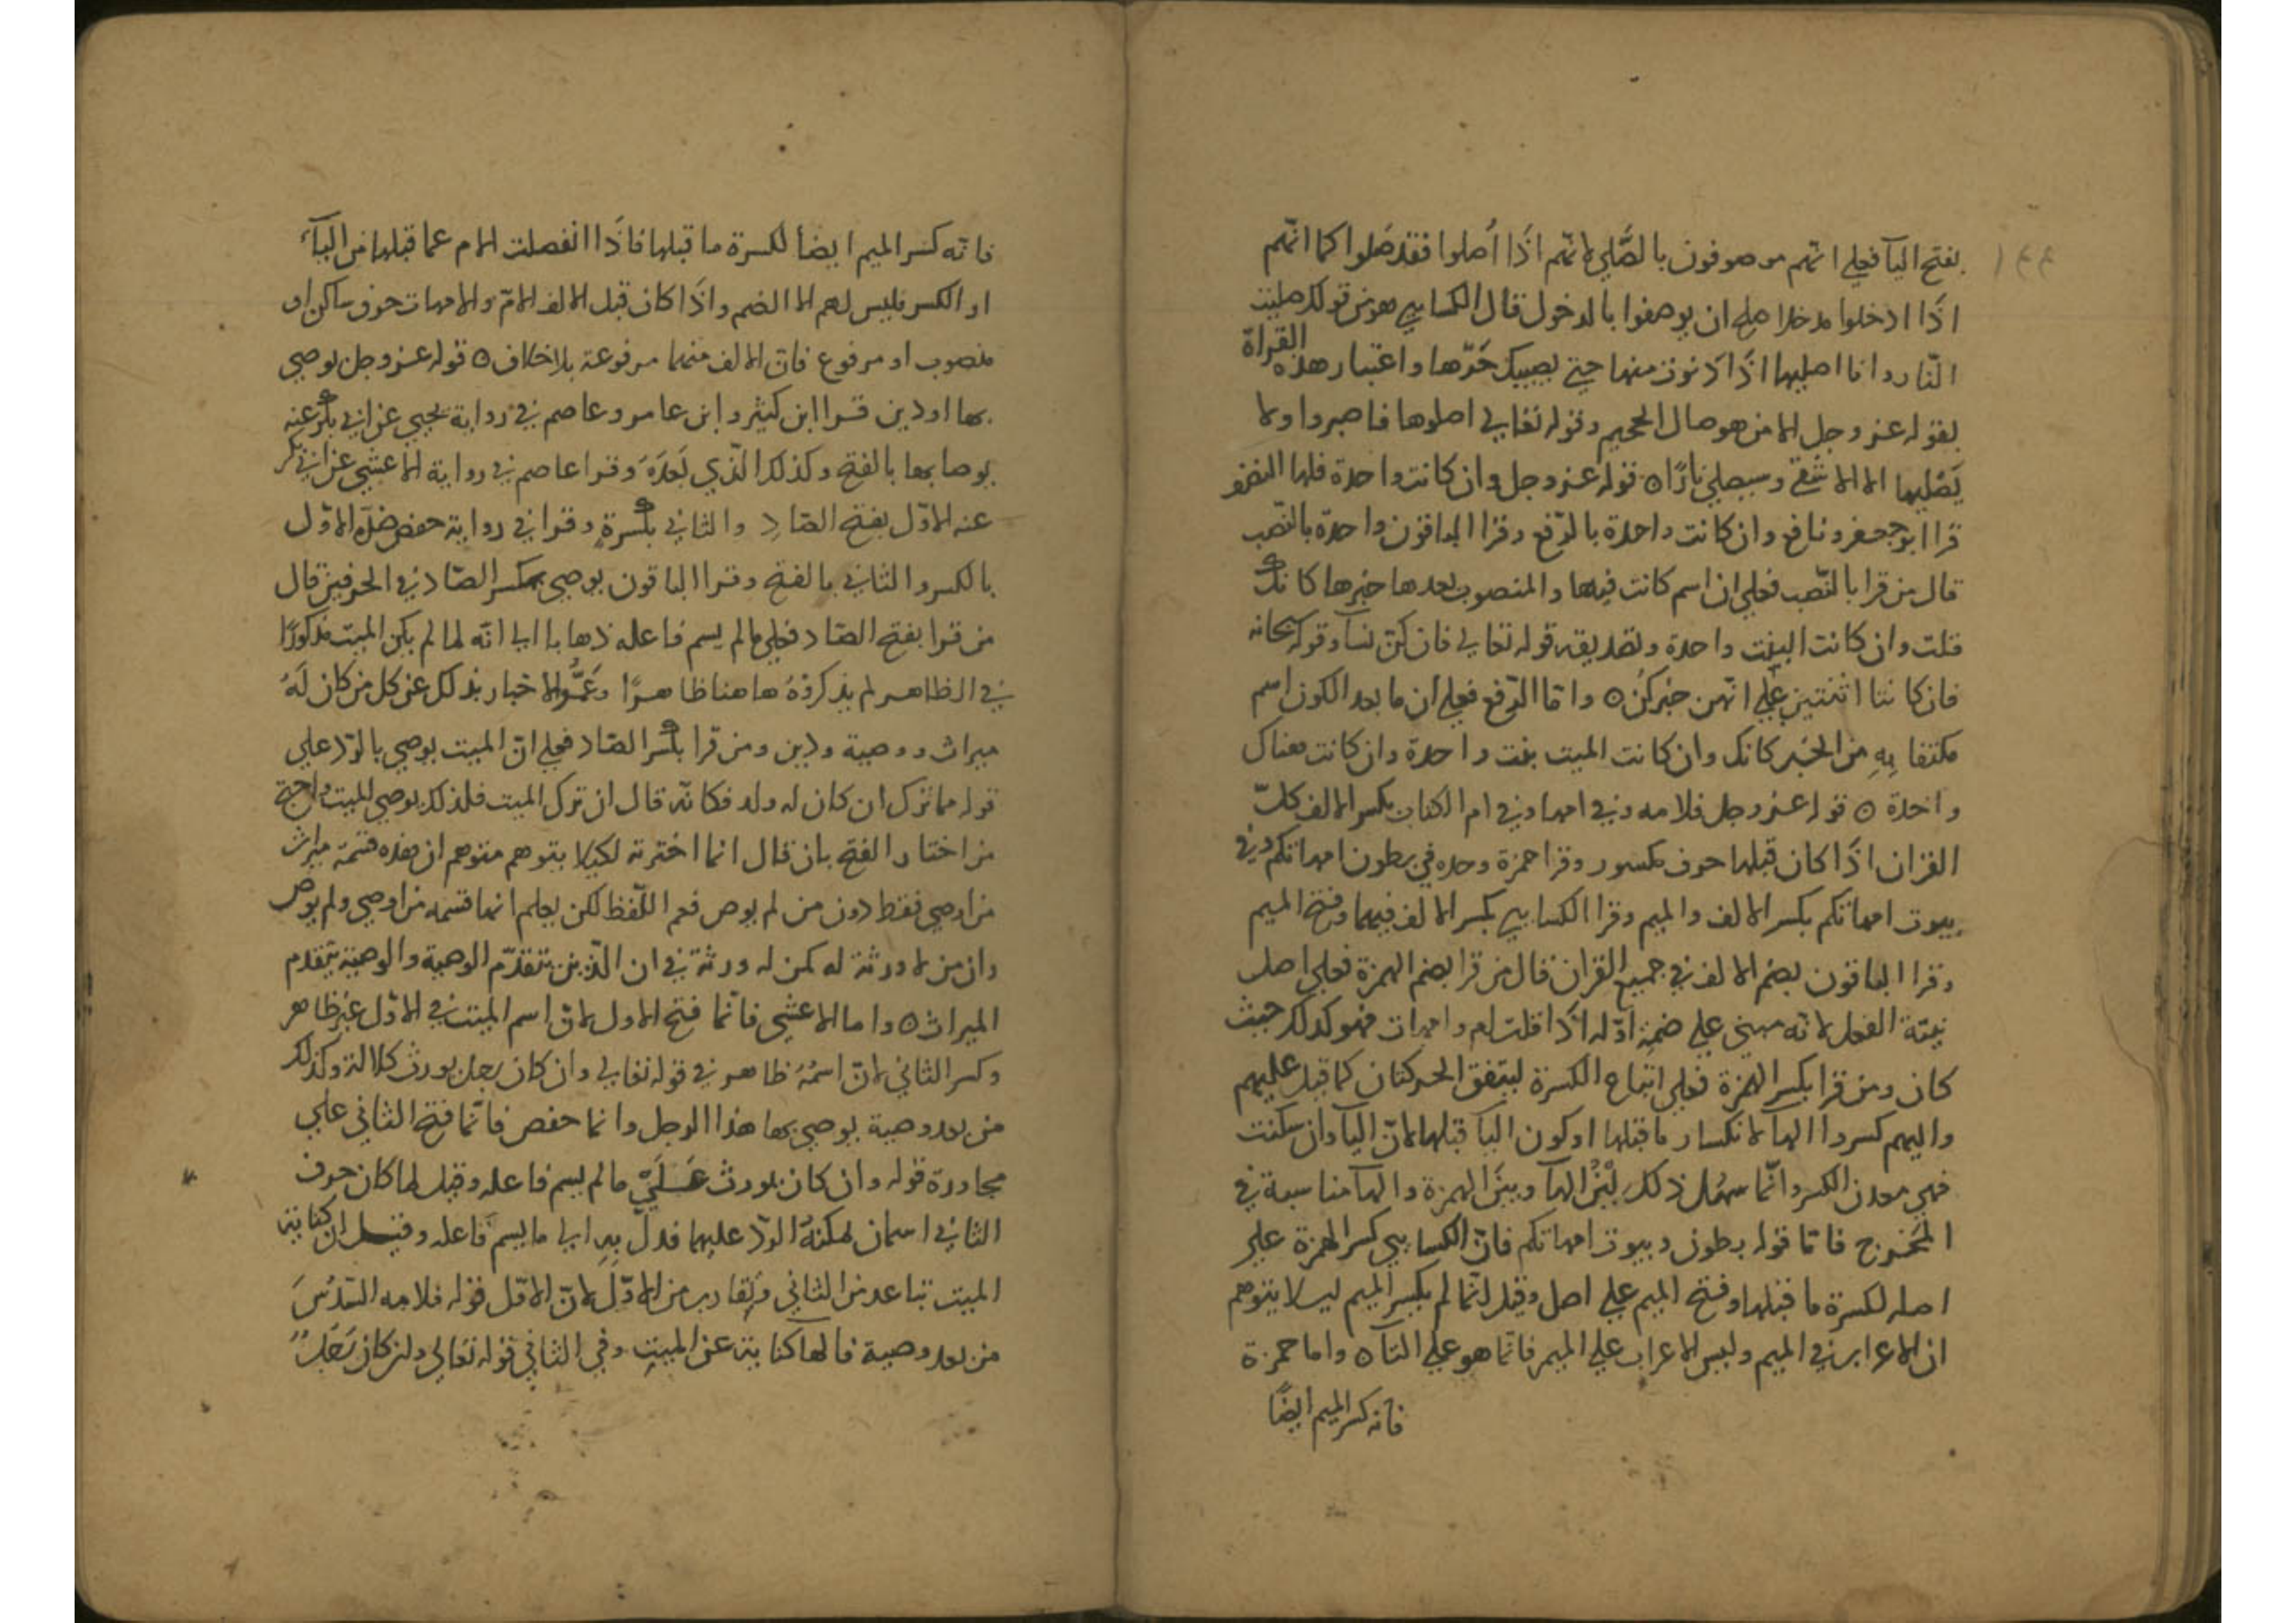 ١٤٤
بفتح اليآ فعلي انهم موصوفون بالصَّلي لانهم اذَا اُصلوا فقد صَلوا كما انهم
اذَا ادخلوا مدخلا صلح ان يوصفوا بالدخول قال الكسايي هو من قولك صليت
النّار وانا اصليها اذَا دنوت منها حتي يصيبك حَرّها واعتبار هذه القراة
بقوله عز وجل الا من هو صال الجحيم وقوله تعالي اصلوها فاصبروا ولا
يَصْليها الا الاشقي وسيصلي نارًا ه قوله عز وجل وان كانت واحدة فلها النصف
قرا ابو جعفر ونافع وان كانت واحدة بالرّفع وقرا الباقون واحدة بالنّصب
قال من قرا بالنّصب فعلي ان اسم كانت فيها والمنصوب بعدها خبرها كانك
قلت وان كانت البنت واحدة وتصديقه قوله تعالي فان كنّ نسآ وقوله سبحانه
فان كانتا اثنتين علي انهن خبر كنّ ه واما الرّفع فعلي ان ما بعد الكون اسم
مكتفا بِهِ من الخبر كانك وان كانت الميت بنت واحدة وان كانت هناك
واحدة ه قوله عز وجل فلامه وفي امها وفي ام الكتاب بكسر الالف كلّ
القران اذَا كان قبلها حرف مكسور وقرا حمزة وحده في بطون امهاتكم وفي
بيوت امهاتكم بكسر الالف والميم وقرا الكسايي بكسر الالف فيهما وفتح الميم
وقرا الباقون بضم الالف في جميع القران قال من قرا بضم الهمزة فعلي اصل
نيّة الفعل لانه مبني علي ضمة اوّله اذَا قلت ام وامهات فهو كذلك حيث
كان ومن قرا بكسر الهمزة فعلي اتباع الكسرة ليتفق الحركتان كما قيل عليهم
واليهم كسروا الهآ لانكسار ما قبلها او كون اليآ قبلها لانّ اليآ وان سكنت
فهي معدن الكسر وانّما سهُل ذلك لانّ الهآ وبين الهمزة والهآ مناسبة في
المخرج فاما قوله بطون وبيوت امهاتكم فانّ الكسايي كسر الهمزة علي
اصله لكسرة ما قبلها وفتح الميم علي اصل وقيل انّما لم يكسر الميم ليلا يتوهم
ان الاعراب في الميم وليس الاعراب علي الميم فانّما هو علي التآ ه واما حمزة
فانه كسر الميم ايضًا
فانّه كسر الميم ايضاً لكسرة ما قبلها فاذَا انفصلت الام عما قبلها من اليآء
او الكسر فليس لهم الا الضم واذَا كان قبل الالف الامّ والامهات حرف ساكن او
منصوب او مرفوع فانّ الالف منهما مرفوعة بلا خلاف ه قوله عز وجل يوصي
بها او دين قرا ابن كثير وابن عامر وعاصم في رواية يحيي عن ابي بكر عنه
يوصا بها بالفتح وكذلك الّذي بَعدَهَ وقرا عاصم في رواية الاعشي عن ابي بكر
عنه الاوّل بفتح الصّادِ والثاني بكسرةٍ وقرا في رواية حفص ضدّه الاوّل
بالكسر والثاني بالفتح وقرا الباقون يوصي بكسر الصّاد في الحرفين قال
من قرا بفتح الصّاد فعلي ما لم يسم فاعله ذهابا الي انّه لما لم يكن الميت مذكورًا
في الظاهر لم يذكروُهُ هاهنا ظاهرًا وعَمُّوا الاخبار بذلك عن كل من كان لَهُ
ميراث ووصية ودين ومن قرا بكسر الصّاد فعلي انّ الميت يوصي بالرّد علي
قوله مما ترك ان كان له ولد فكانّه قال ان ترك الميت فلذلك يوصي الميت واحتج
من اختار الفتح بان قال انما اخترته لكيلا يتوهم متوهم ان هذه قسمة ميراث
من اوصي فقط دون من لم يوص فعم اللّفظ لكن يعلم انها قسمه من اوصي ولم يوص
وان من لا ورثة له كمن له ورثة في ان الدّين يتقدّم الوصية والوصية تتقدم
الميراث ه واما الاعشي فانّما فتح الاول لانّ اسم الميت في الاوّل غير ظاهر
وكسر الثاني لانّ اسمُهُ ظاهر في قوله تعالي وان كان رجل يورث كلالة وكذلك
من بعد وصية يوصي بها هذا الرجل وانما حفص فانّما فتح الثاني علي
مجاورة قوله وان كان يورث عَلَيْ ما لم يسم فاعله وقيل لما كان حرف
الثاني اسمان يمكنهُ الرّد عليهما فدلّ بِهِ الي ما يسم فاعله وقيل ان كناية
الميت تباعد من الثاني وتقارب من الاوّل لانّ الاوّل قوله فلامه السّدُسَ
من بعد وصية فالها كناية عن الميتِ وفي الثاني قوله تعَالي وان كان رَجُلٌ